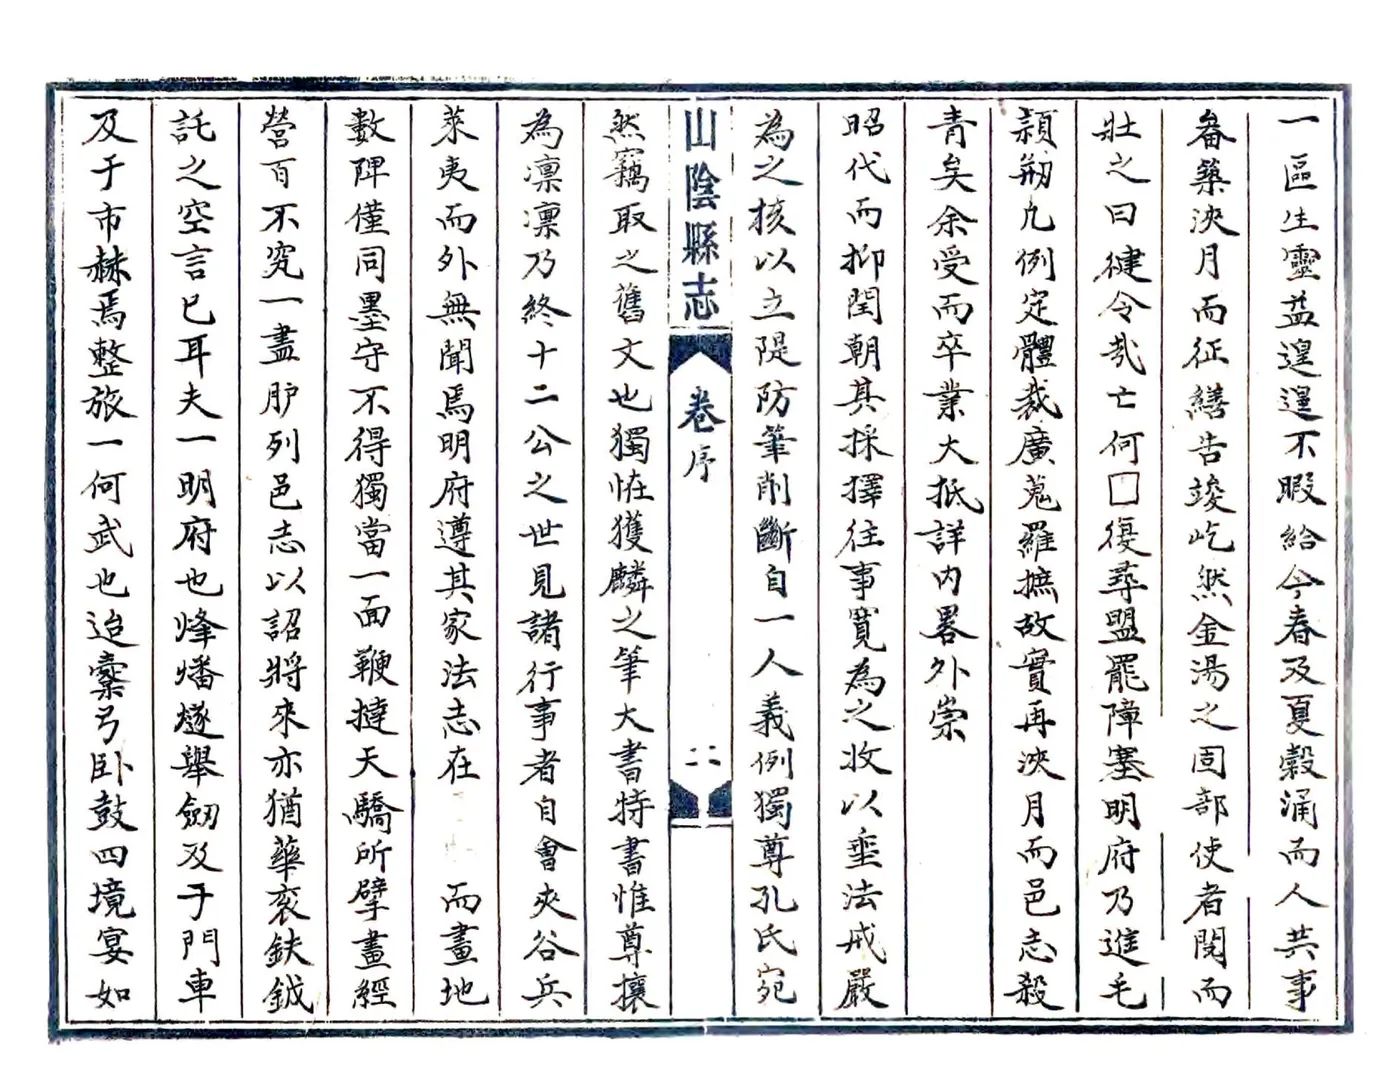 一區生靈益遑遑不暇給今春及夏穀涌而人共事
畚築浹月而征繕告竣屹然金湯之固部使者閱而
壯之曰健令哉亡何□復尋盟罷障塞明府乃進毛
頴剏凡例定體裁廣蒐羅摭故實再浹月而邑志殺
青矣余受而卒業大抵詳內畧外崇
昭代而抑閏朝其採擇往事寬為之收以垂法戒嚴
為之核以立隄防筆削斷自一人義例獨尊孔氏宛
山陰縣志
卷序
二
然竊取之舊文也獨恠獲麟之筆大書特書惟尊攘
為凛凛乃終十二公之世見諸行事者自會夾谷兵
萊夷而外無聞焉明府遵其家法志在
而畫地
數陴僅同墨守不得獨當一面鞭撻天驕所擘畫經
營百不究一盡胪列邑志以詔將來亦猶華袞鈇鉞
託之空言已耳夫一明府也烽燔燧舉劔及于門車
及于市赫焉整旅一何武也迨櫜弓卧鼓四境宴如